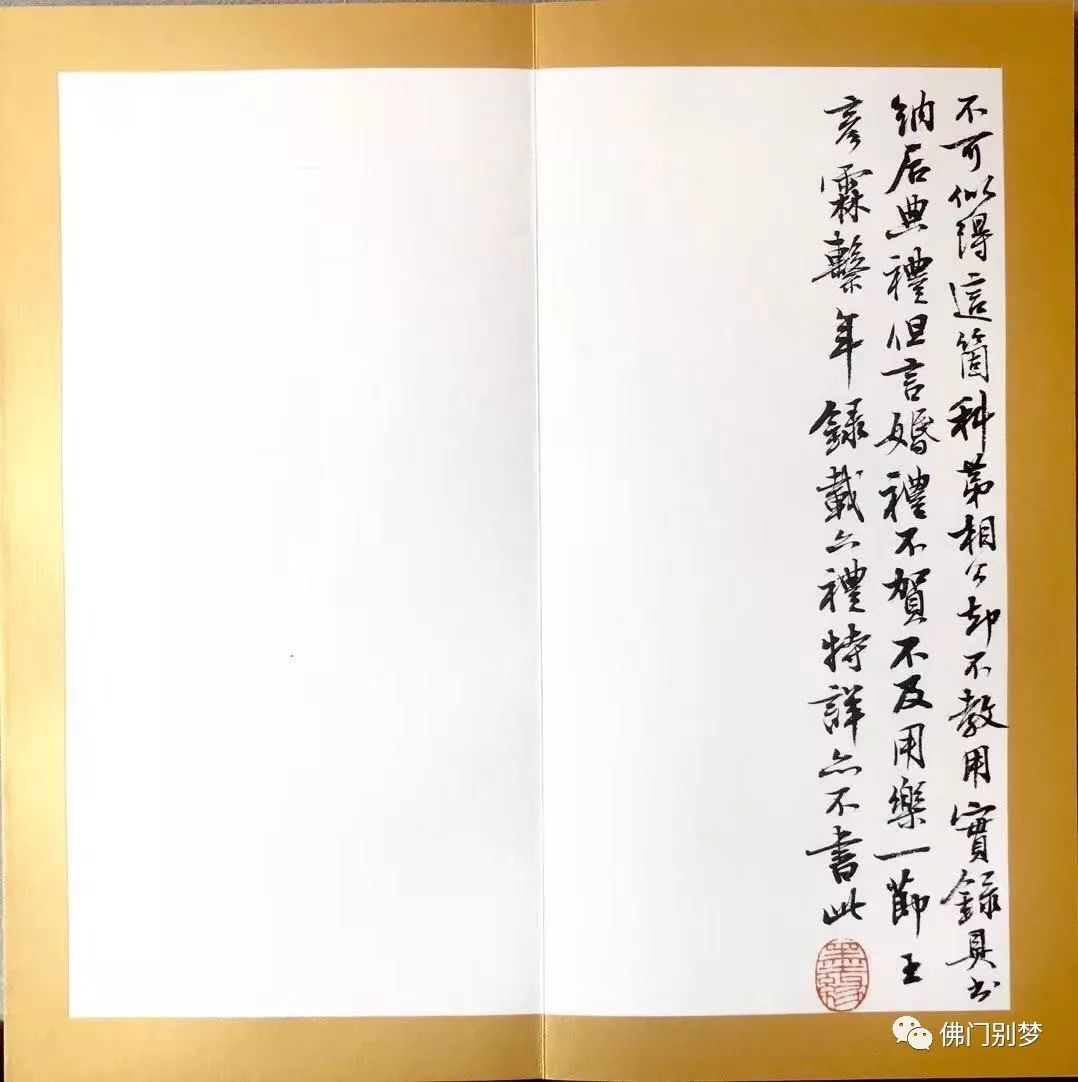 不可似得這箇科第相公却不教用實錄具書
納后典禮但言婚禮不賀不及用樂一節王
彥霖繫年錄載六禮特詳亦不書此
佛门别梦